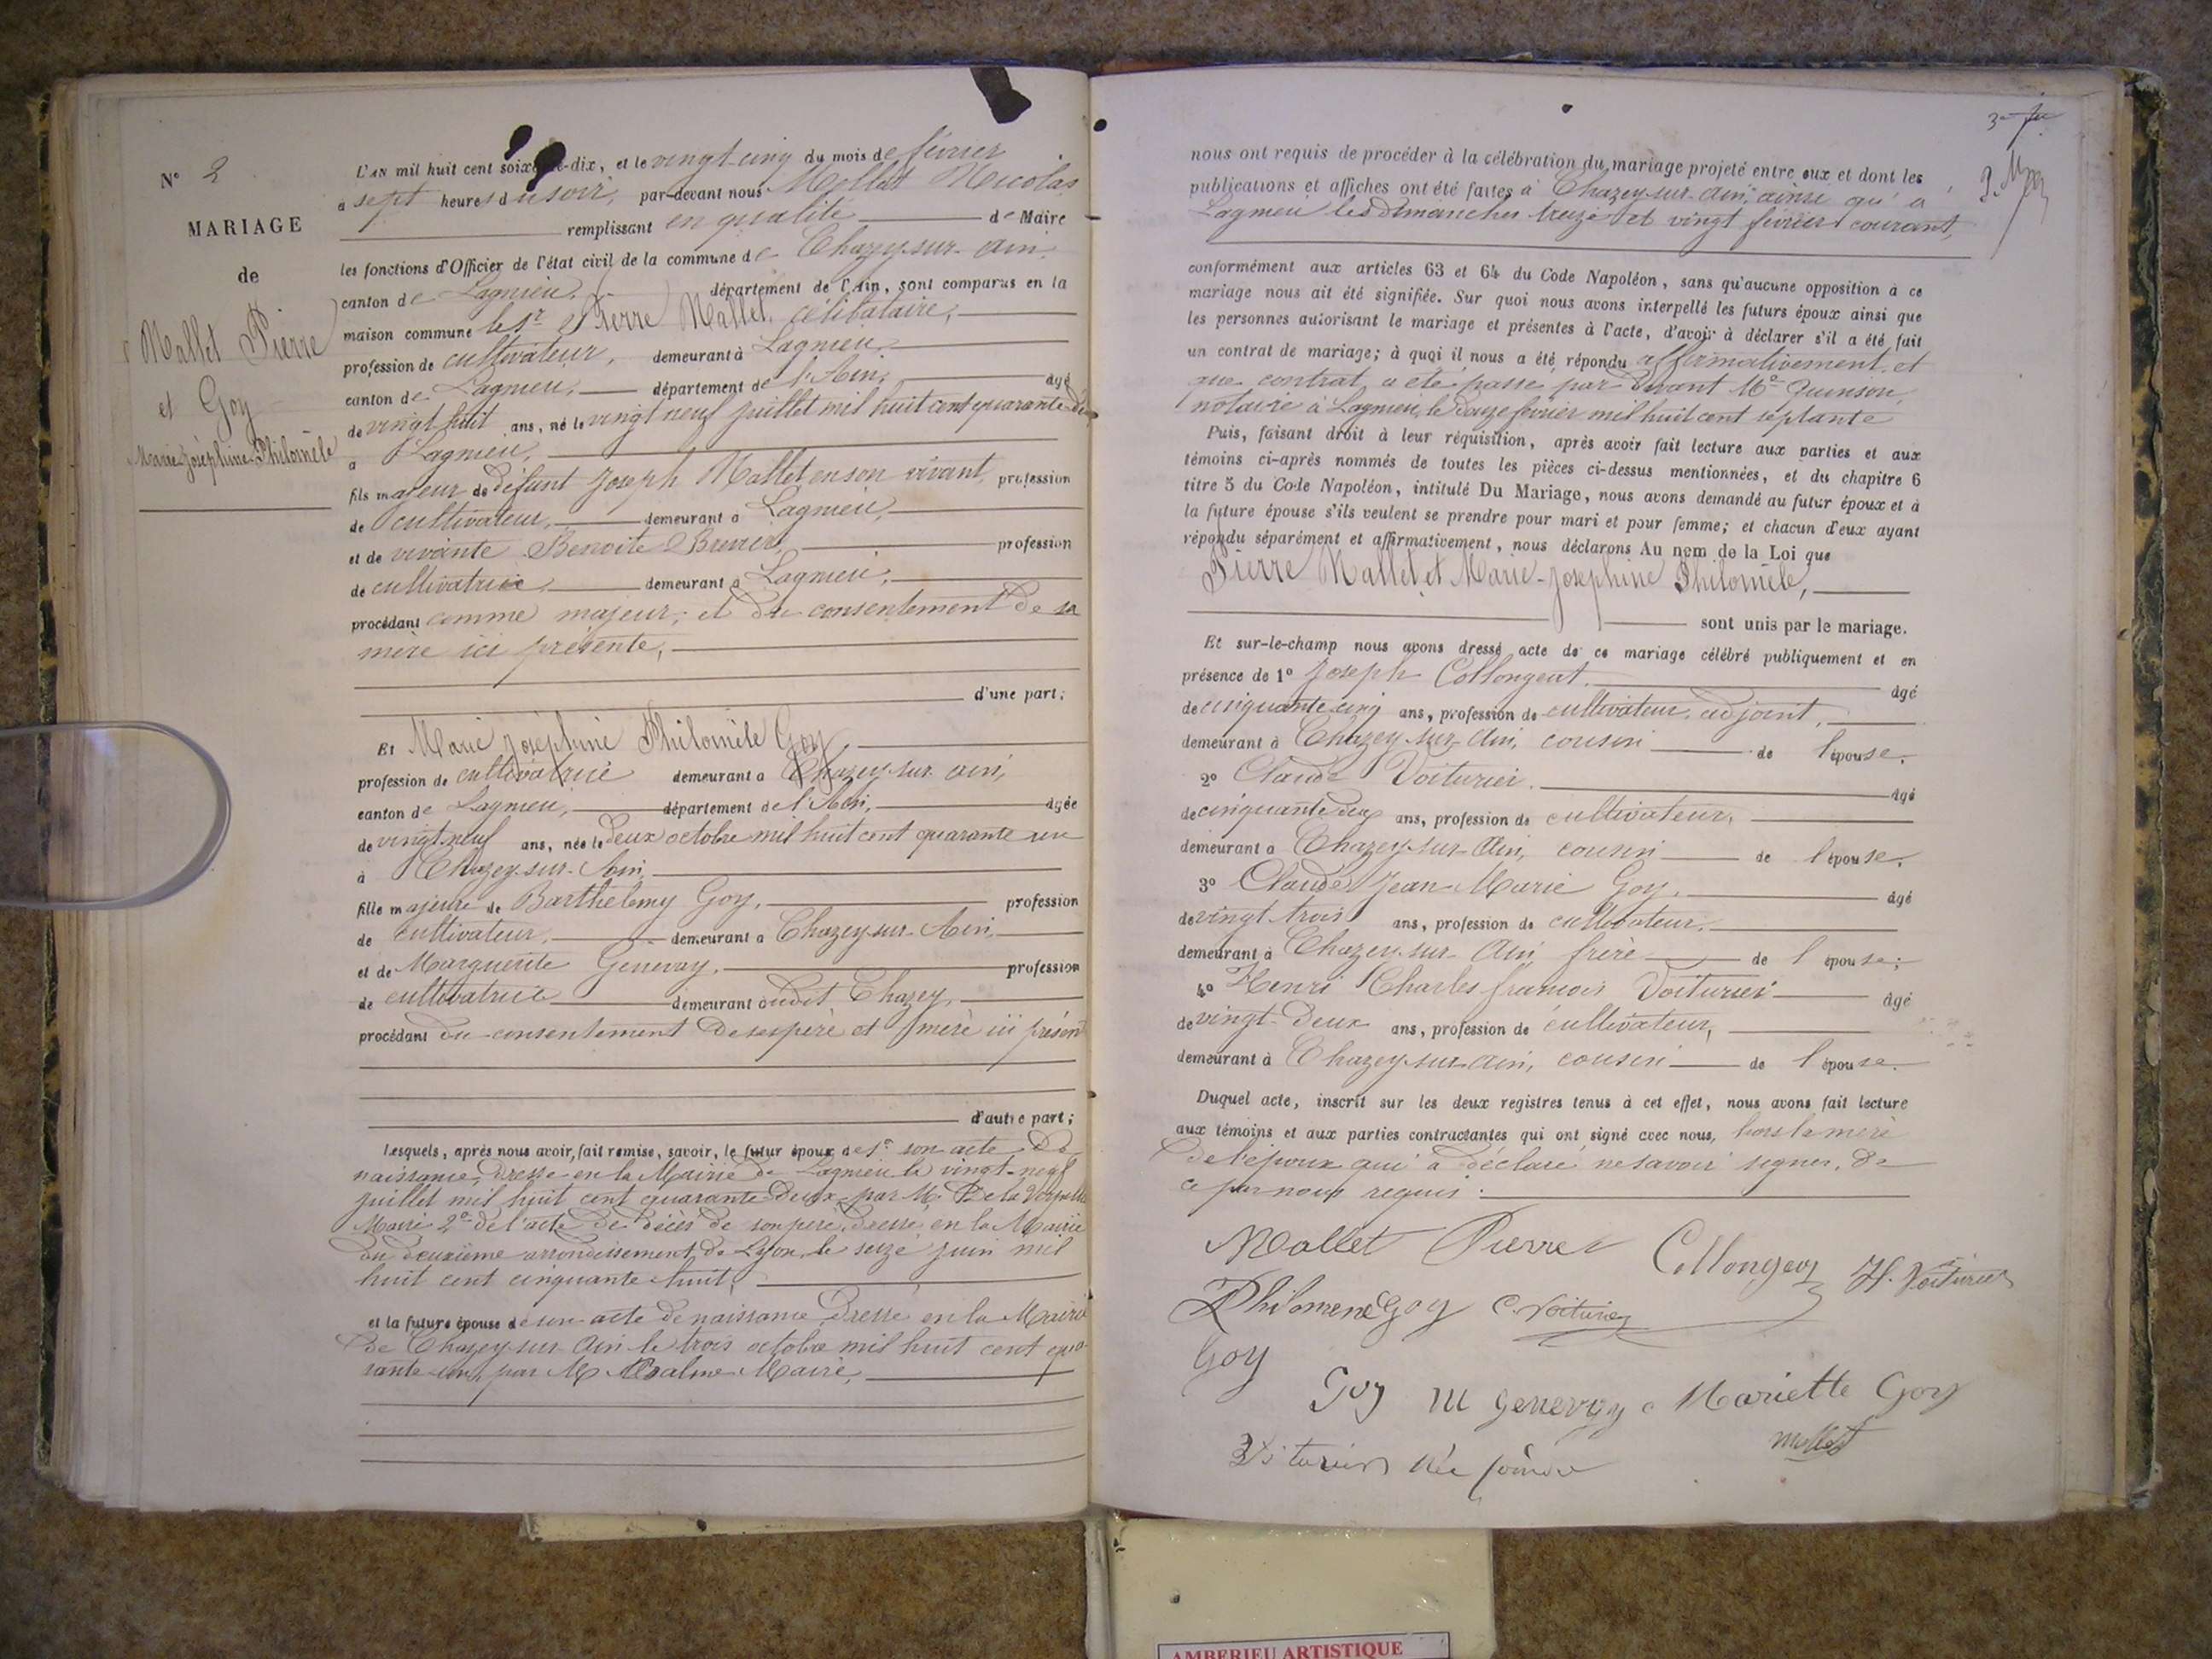 N° 2
MARIAGE
de
Mallet Pierre
et Goy
Marie-Joséphine-Philomèle
L'AN mil huit cent soixante-dix, et le vingt-cinq du mois de février
a sept heures du soir, par-devant nous Mollat Nicolas
remplissant en qualité de Maire
les fonctions d'Officier de l'état civil de la commune de Chazey-sur-Ain,
canton de Lagnieu, département de l'Ain, sont comparus en la
maison commune le Sr Pierre Mallet, célibataire,
profession de cultivateur, demeurant à Lagnieu,
canton de Lagnieu, département de l'Ain, âgé
de vingt huit ans, né le vingt neuf juillet mil huit cent quarante-
a Lagnieu,
fils majeur de défunt Joseph Mallet en son vivant, profession
de cultivateur, demeurant a Lagnieu,
et de vivante Benoite profession
de cultivatrice demeurant a Lagnieu,
procédant comme majeur, et du consentement de sa
mère ici présente,
d'une part;
Et Marie Joséphine Philomèle Goy,
profession de cultivatrice demeurant a Chazey-sur-ain,
canton de Lagnieu, département de l'Ain, âgée
de vingt-neuf ans, née le deux octobre mil huit cent quarante un
à Chazey-sur-Ain,
fille majeure de Barthélemy Goy, profession
de cultivateur, demeurant a Chazey-sur-Ain,
et de Marguerite Genevay, profession
de cultivatrice demeurant audit Chazey,
procédant du consentement de ses père et mère ici présent
d'autre part;
Lesquels, après nous avoir fait remise, savoir, le futur époux de 1° son acte de
naissance, dressé en la Mairie de Lagnieu le vingt-neuf
juillet mil huit cent quarante deux par M. De la
Maire 2° de l'acte de décès de son père, dressé en la Mairie
du deuxième arrondissement de Lyon, le seize juin mil
huit cent cinquante huit,
et la future épouse de son acte de naissance, dressé en la Mairie
de Chazey-sur-Ain le trois octobre mil huit cent qua-
rante-un, par M. Maire,
nous ont requis de procéder à la célébration du mariage projeté entre eux et dont les
publications et affiches ont été faites à Chazey-sur-Ain, ainsi qu'à
Lagnieu les dimanches treize et vingt février courant,
conformément aux articles 63 et 64 du Code Napoléon, sans qu'aucune opposition à ce
mariage nous ait été signifiée. Sur quoi nous avons interpellé les futurs époux ainsi que
les personnes autorisant le mariage et présentes à l'acte, d'avoir à déclarer s'il a été fait
un contrat de mariage; à quoi il nous a été répondu affirmativement, et
que contrat a été passé par devant Me Quinson,
notaire à Lagnieu, le douze février mil huit cent septante
Puis, faisant droit à leur réquisition, après avoir fait lecture aux parties et aux
témoins ci-après nommés de toutes les pièces ci-dessus mentionnées, et du chapitre 6
titre 5 du Code Napoléon, intitulé Du Mariage, nous avons demandé au futur époux et à
la future épouse s'ils veulent se prendre pour mari et pour femme; et chacun d'eux ayant
répondu séparément et affirmativement, nous déclarons Au nom de la Loi que
Pierre Mallet et Marie-Joséphine Philomèle,
sont unis par le mariage.
Et sur-le-champ nous avons dressé acte de ce mariage célébré publiquement et en
présence de 1° Joseph Collongeat, âgé
de cinquante cinq ans, profession de cultivateur, adjoint,
demeurant à Chazey-sur-Ain, cousin de l'épouse,
2° Claude Voiturier, âgé
de cinquante deux ans, profession de cultivateur,
demeurant a Chazey-sur-Ain, cousin de l'épouse,
3° Claude Jean-Marie Goy, âgé
de vingt trois ans, profession de cultivateur,
demeurant à Chazey-sur-Ain, frère de l'épouse;
4° Henri Charles françois Voiturier âgé
de vingt-deux ans, profession de cultivateur,
demeurant à Chazey-sur-ain, cousin de l'épouse.
Duquel acte, inscrit sur les deux registres tenus à cet effet, nous avons fait lecture
aux témoins et aux parties contractantes qui ont signé avec nous, hors la mère
de l'époux qui a déclaré ne savoir signer, de
ce par nous requis.
Mallet Pierre Collongeat H. Voiturier
Philomene Goy C. Voiturier
Goy
Goy M Genevay Mariette Goy
Mollat
AMBERIEU ARTISTIQUE